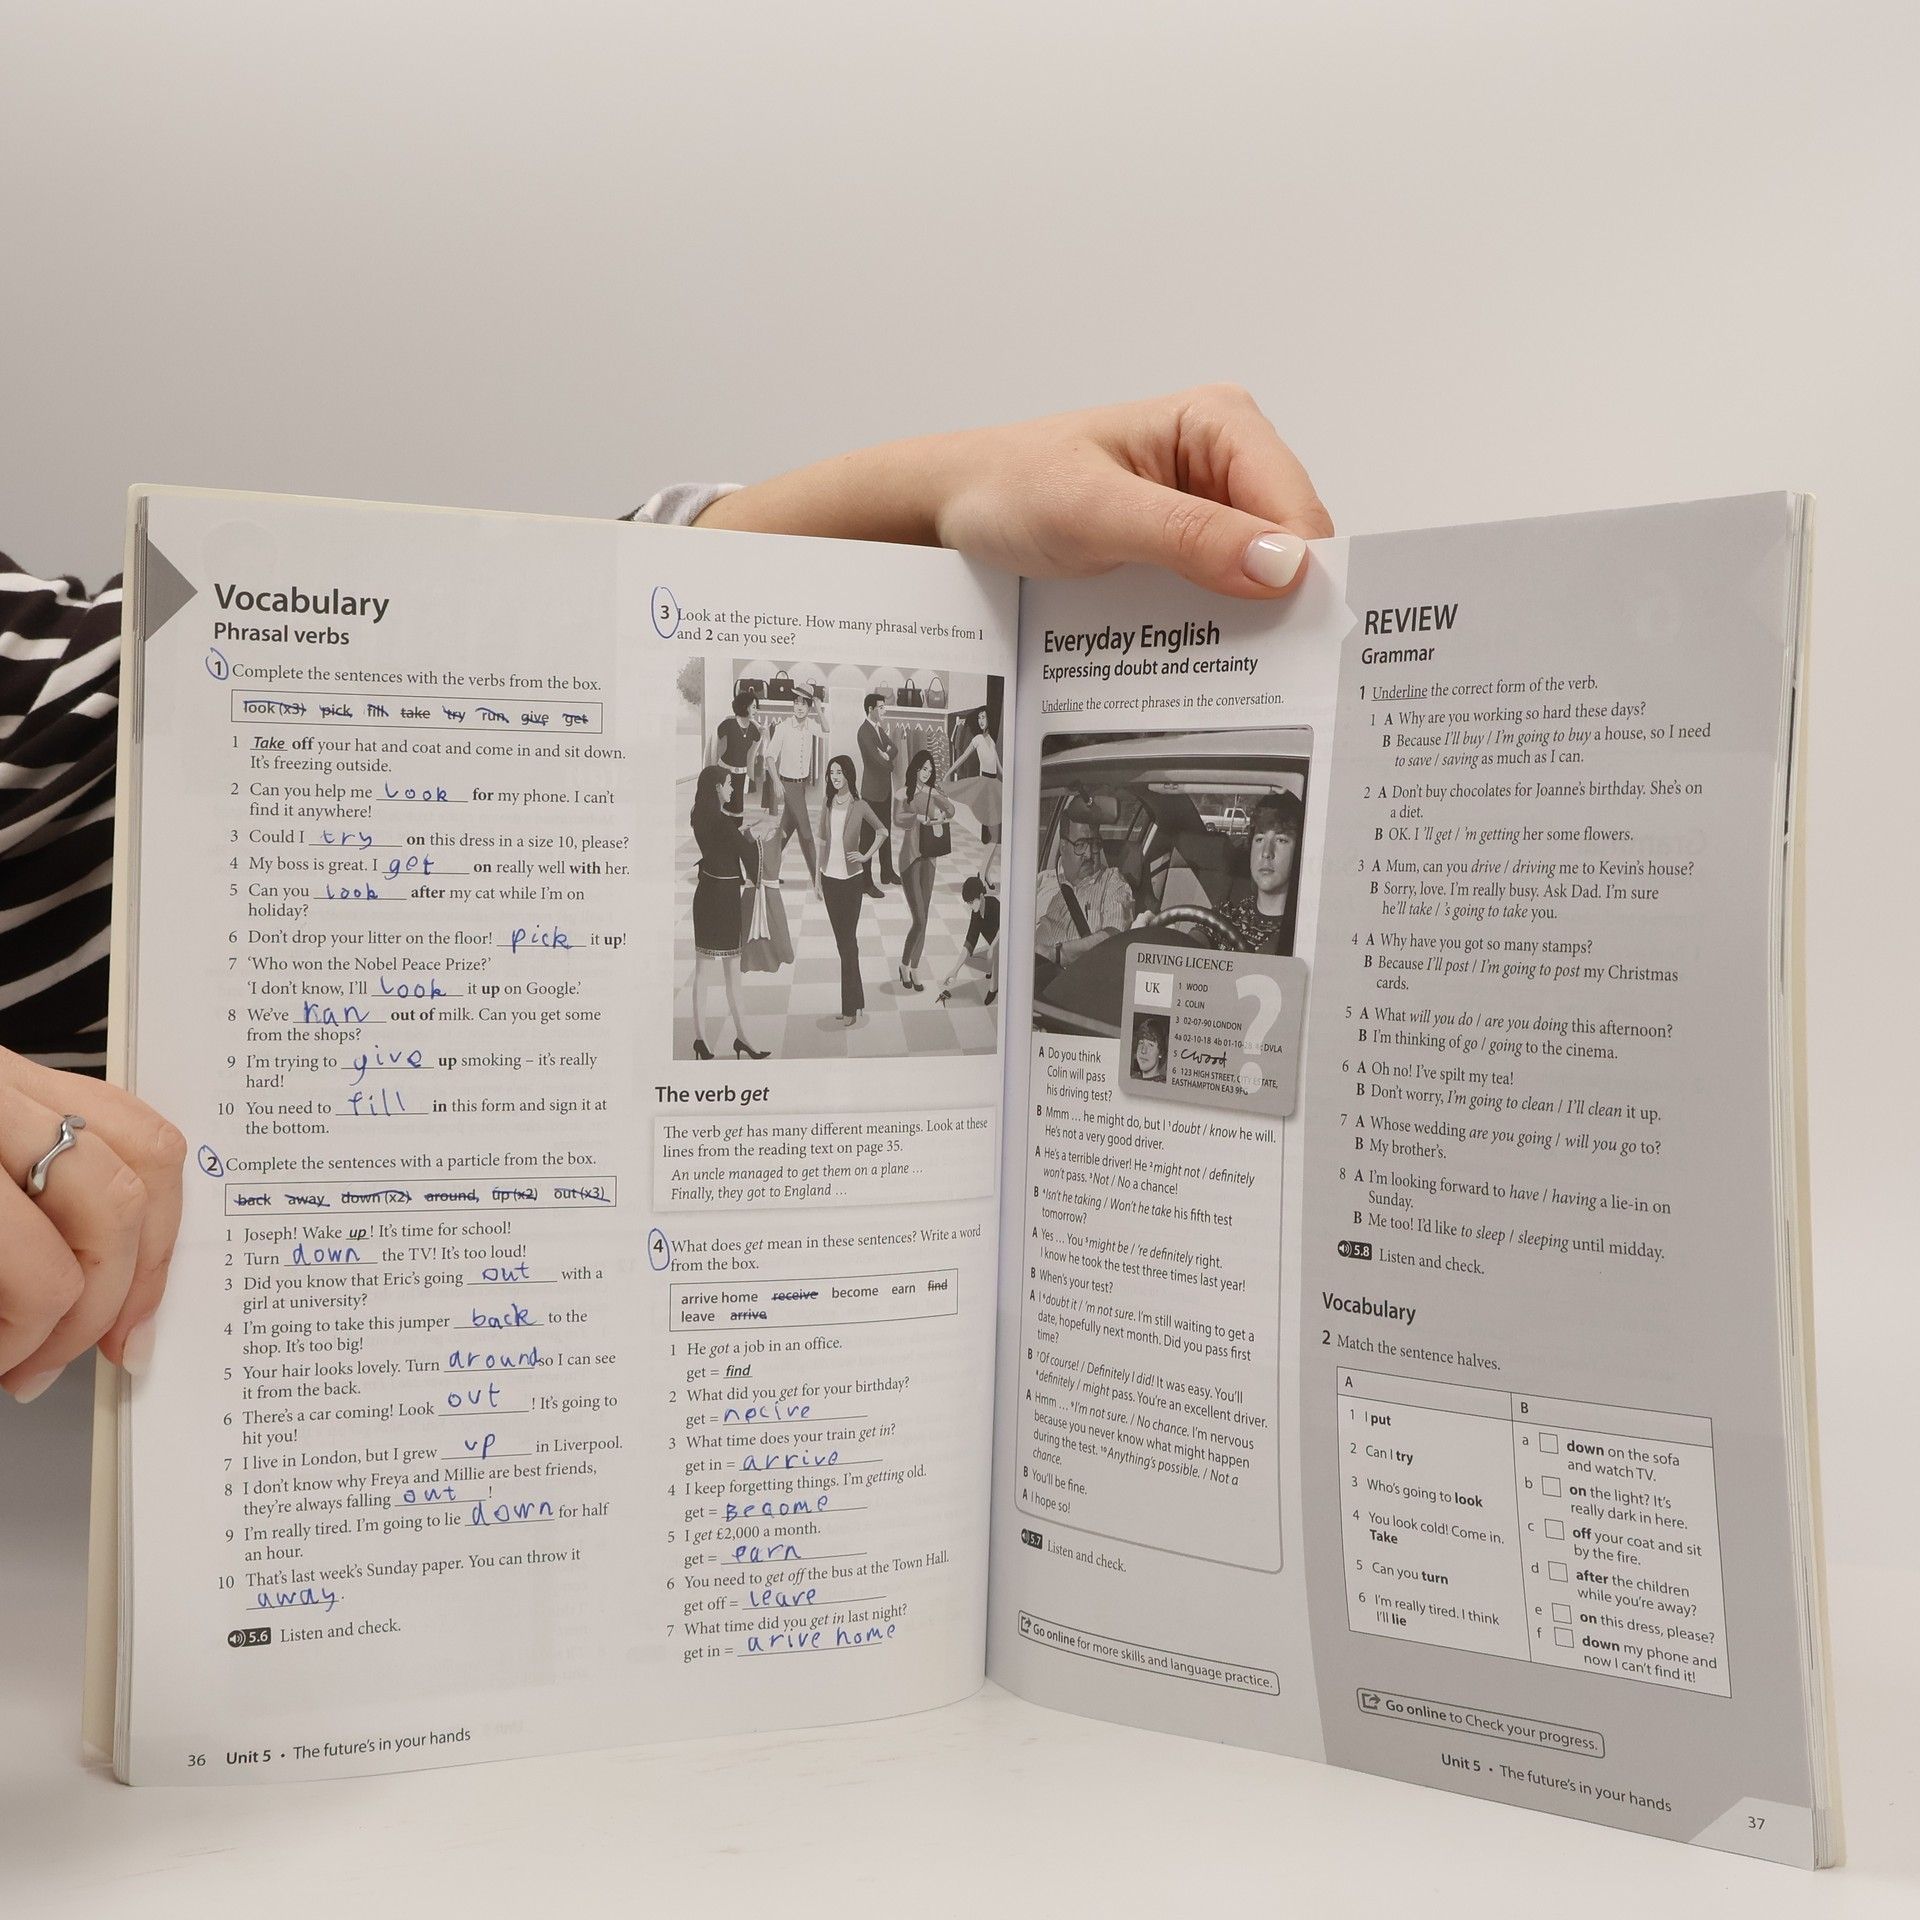 Vocabulary
Phrasal verbs
1 Complete the sentences with the verbs from the box.
look (x3) pick fill take try run give get
1 Take off your hat and coat and come in and sit down.
It's freezing outside.
2 Can you help me look for my phone. I can't
find it anywhere!
3 Could I try on this dress in a size 10, please?
4 My boss is great. I get on really well with her.
5 Can you look after my cat while I'm on
holiday?
6 Don't drop your litter on the floor! pick it up!
7 'Who won the Nobel Peace Prize?'
'I don't know, I'll look it up on Google.'
8 We've ran out of milk. Can you get some
from the shops?
9 I'm trying to give up smoking – it's really
hard!
10 You need to fill in this form and sign it at
the bottom.
2 Complete the sentences with a particle from the box.
back away down (x2) around up (x2) out (x3)
1 Joseph! Wake up! It's time for school!
2 Turn down the TV! It's too loud!
3 Did you know that Eric's going out with a
girl at university?
4 I'm going to take this jumper back to the
shop. It's too big!
5 Your hair looks lovely. Turn around so I can see
it from the back.
6 There's a car coming! Look out! It's going to
hit you!
7 I live in London, but I grew up in Liverpool.
8 I don't know why Freya and Millie are best friends,
they're always falling out!
9 I'm really tired. I'm going to lie down for half
an hour.
10 That's last week's Sunday paper. You can throw it
away.
5.6 Listen and check.
36 Unit 5 • The future's in your hands
3 Look at the picture. How many phrasal verbs from 1
and 2 can you see?
The verb get
The verb get has many different meanings. Look at these
lines from the reading text on page 35.
An uncle managed to get them on a plane ...
Finally, they got to England ...
4 What does get mean in these sentences? Write a word
from the box.
arrive home receive become earn find
leave arrive
1 He got a job in an office.
get = find
2 What did you get for your birthday?
get = recive
3 What time does your train get in?
get in = arrive
4 I keep forgetting things. I'm getting old.
get = Become
5 I get £2,000 a month.
get = earn
6 You need to get off the bus at the Town Hall.
get off = leave
7 What time did you get in last night?
get in = arive home
Everyday English
Expressing doubt and certainty
Underline the correct phrases in the conversation.
DRIVING LICENCE
UK
1 WOOD
2 COLIN
3 02-07-90 LONDON
4a 02-10-18 4b 01-10- DVLA
5 CWood
6 123 HIGH STREET, CITY ESTATE,
EASTHAMPTON EA3 9FG
?
A Do you think
Colin will pass
his driving test?
B Mmm ... he might do, but I 1doubt / know he will.
He's not a very good driver.
A He's a terrible driver! He 2might not / definitely
won't pass. 3Not / No a chance!
B 4Isn't he taking / Won't he take his fifth test
tomorrow?
A Yes ... You 5might be / 're definitely right.
I know he took the test three times last year!
B When's your test?
A I 6doubt it / 'm not sure. I'm still waiting to get a
date, hopefully next month. Did you pass first
time?
B 7Of course! / Definitely I did! It was easy. You'll
8definitely / might pass. You're an excellent driver.
A Hmm ... 9I'm not sure. / No chance. I'm nervous
because you never know what might happen
during the test. 10Anything's possible. / Not a
chance.
B You'll be fine.
A I hope so!
5.7 Listen and check.
Go online for more skills and language practice.
REVIEW
Grammar
1 Underline the correct form of the verb.
1 A Why are you working so hard these days?
B Because I'll buy / I'm going to buy a house, so I need
to save / saving as much as I can.
2 A Don't buy chocolates for Joanne's birthday. She's on
a diet.
B OK. I 'll get / 'm getting her some flowers.
3 A Mum, can you drive / driving me to Kevin's house?
B Sorry, love. I'm really busy. Ask Dad. I'm sure
he'll take / 's going to take you.
4 A Why have you got so many stamps?
B Because I'll post / I'm going to post my Christmas
cards.
5 A What will you do / are you doing this afternoon?
B I'm thinking of go / going to the cinema.
6 A Oh no! I've spilt my tea!
B Don't worry, I'm going to clean / I'll clean it up.
7 A Whose wedding are you going / will you go to?
B My brother's.
8 A I'm looking forward to have / having a lie-in on
Sunday.
B Me too! I'd like to sleep / sleeping until midday.
5.8 Listen and check.
Vocabulary
2 Match the sentence halves.
A
1 I put
2 Can I try
3 Who's going to look
4 You look cold! Come in.
Take
5 Can you turn
6 I'm really tired. I think
I'll lie
B
a down on the sofa
and watch TV.
b on the light? It's
really dark in here.
c off your coat and sit
by the fire.
d after the children
while you're away?
e on this dress, please?
f down my phone and
now I can't find it!
Go online to Check your progress.
Unit 5 • The future's in your hands
37